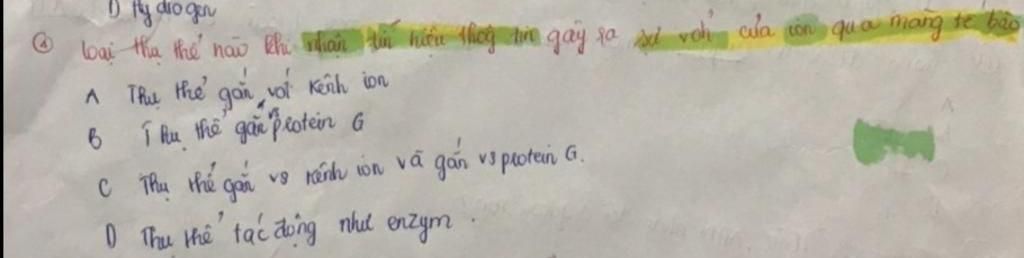 D Hydrogen
④ loại thụ thể nào khi nhận tín hiệu thog tin gây ra sự vch của ion qua màng tế bào
A Thụ thể gắn với kênh ion
B Thụ thể gắn protein G
C Thụ thể gắn vs kênh ion và gắn vs protein G.
D Thụ thể tác động như enzym.